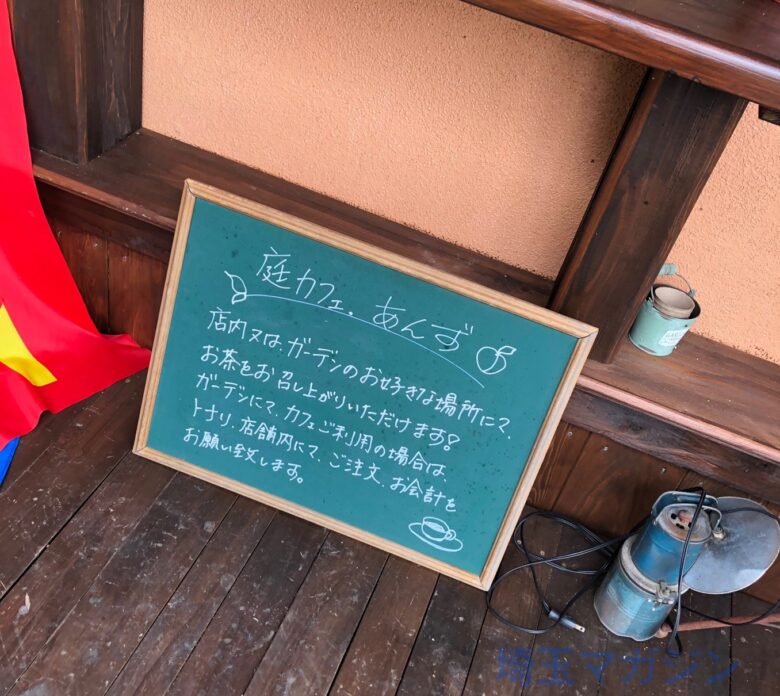 庭カフェ、あんず
店内又は、ガーデンのお好きな場所にて、
お茶をお召し上がりいただけます♪
ガーデンにて、カフェご利用の場合は、
トナリ、店舗内にて、ご注文、お会計を
お願い致します。
埼玉マガジン